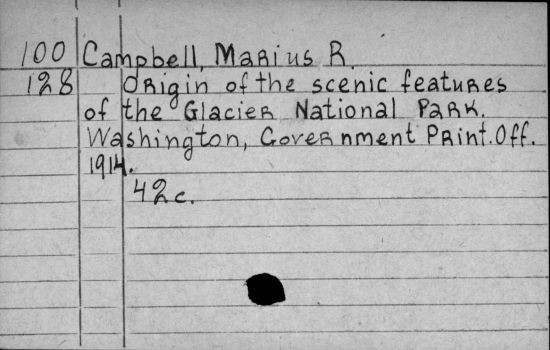 100 Campbell, Marius R.
128 Origin of the scenic features
of the Glacier National Park.
Washington, Government Print. Off.
1914.
42c.